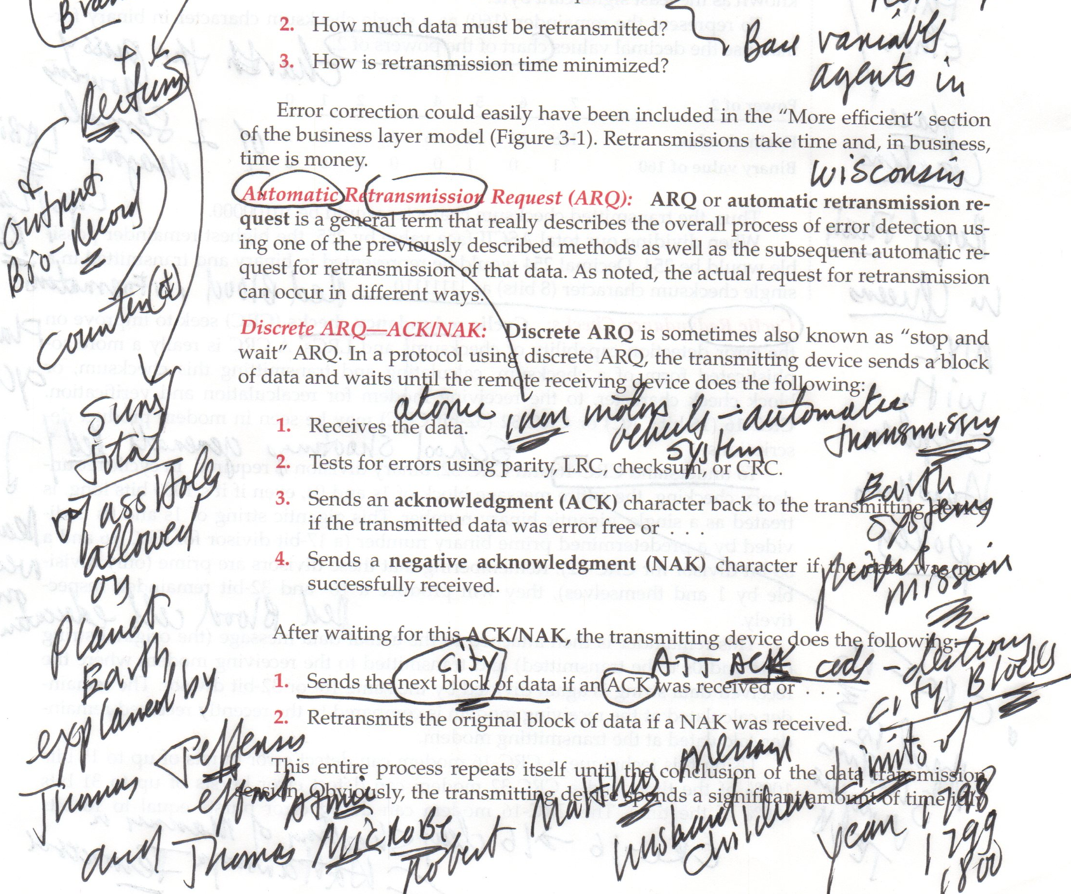 Brain
+
Rectum
output
Blood
Record
counter(s)
Sums
Total
of assholes
allowed
on
Planet
Earth
explained by
Thomas Jefferson
and Thomas Microbe
Robert Malthus
husband
children
message
2. How much data must be retransmitted?
3. How is retransmission time minimized?
Base variables
agents in
Wisconsin
Error correction could easily have been included in the “More efficient” section
of the business layer model (Figure 3-1). Retransmissions take time and, in business,
time is money.
Automatic Retransmission Request (ARQ): ARQ or automatic retransmission re-
quest is a general term that really describes the overall process of error detection us-
ing one of the previously described methods as well as the subsequent automatic re-
quest for retransmission of that data. As noted, the actual request for retransmission
can occur in different ways.
Discrete ARQ—ACK/NAK: Discrete ARQ is sometimes also known as “stop and
wait” ARQ. In a protocol using discrete ARQ, the transmitting device sends a block
of data and waits until the remote receiving device does the following:
atomic
motor
vehicle
system
automatic
transmission
1. Receives the data.
2. Tests for errors using parity, LRC, checksum, or CRC.
3. Sends an acknowledgment (ACK) character back to the transmitting device
if the transmitted data was error free or . . .
4. Sends a negative acknowledgment (NAK) character if the data was not
successfully received.
Earth
systems
mission
After waiting for this ACK/NAK, the transmitting device does the following:
ATT ACK code - destroy
city Blocks
1. Sends the next block of data if an ACK was received or . . . .
2. Retransmits the original block of data if a NAK was received.
Limits of
year 1798
1799
1800
This entire process repeats itself until the conclusion of the data transmission
session. Obviously, the transmitting device spends a significant amount of time idly